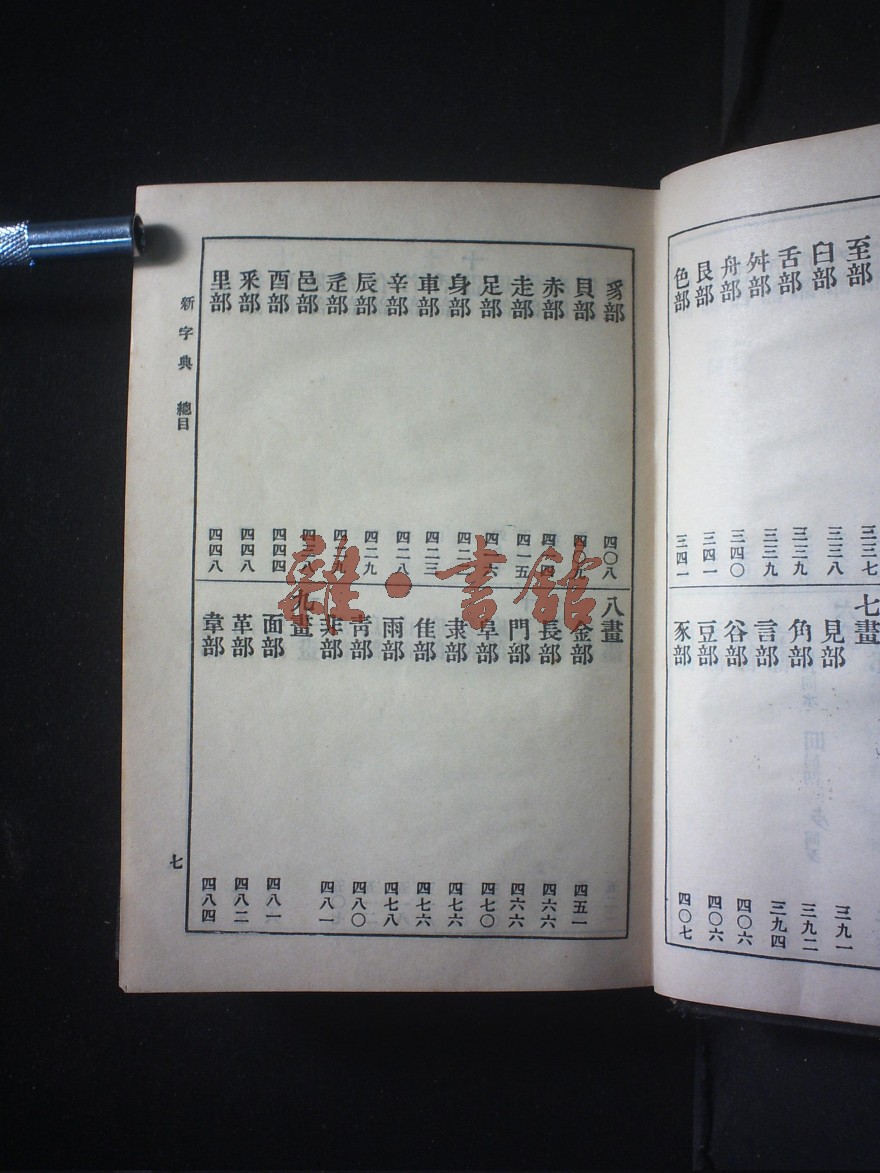 至部 三三七
臼部 三三八
舌部 三三九
舛部 三三九
舟部 三四〇
艮部 三四一
色部 三四一
七畫
見部 三九一
角部 三九二
言部 三九四
谷部 四〇六
豆部 四〇六
豕部 四〇七
豸部 四〇八
貝部 四〇九
赤部
走部 四一五
足部 四一六
身部
車部 四二三
辛部 四二八
辰部 四二九
辵部 四二九
邑部 四三八
酉部 四四四
釆部 四四八
里部 四四八
八畫
金部 四五一
長部 四六六
門部 四六六
阜部 四七〇
隶部 四七六
隹部 四七六
雨部 四七八
靑部 四八〇
非部 四八一
九畫
面部 四八一
革部 四八二
韋部 四八四
新字典 總目 七
雜·書館